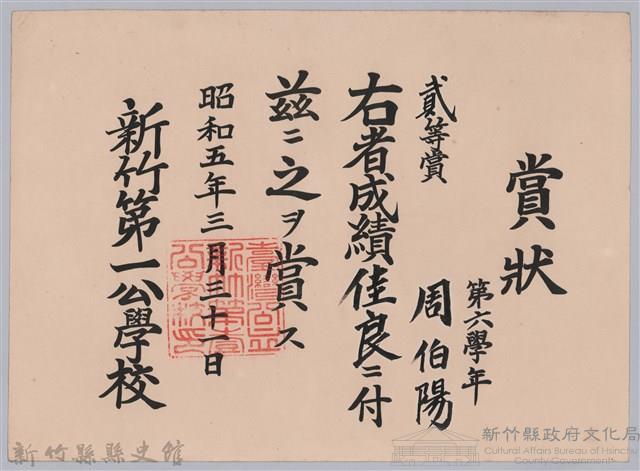 賞狀
第六學年
周伯陽
貳等賞
右者成績佳良ニ付
茲ニ之ヲ賞ス
昭和五年三月三十一日
新竹第一公學校
新竹縣縣史館
新竹縣政府文化局
Cultural Affairs Bureau of Hsinchu
County Government